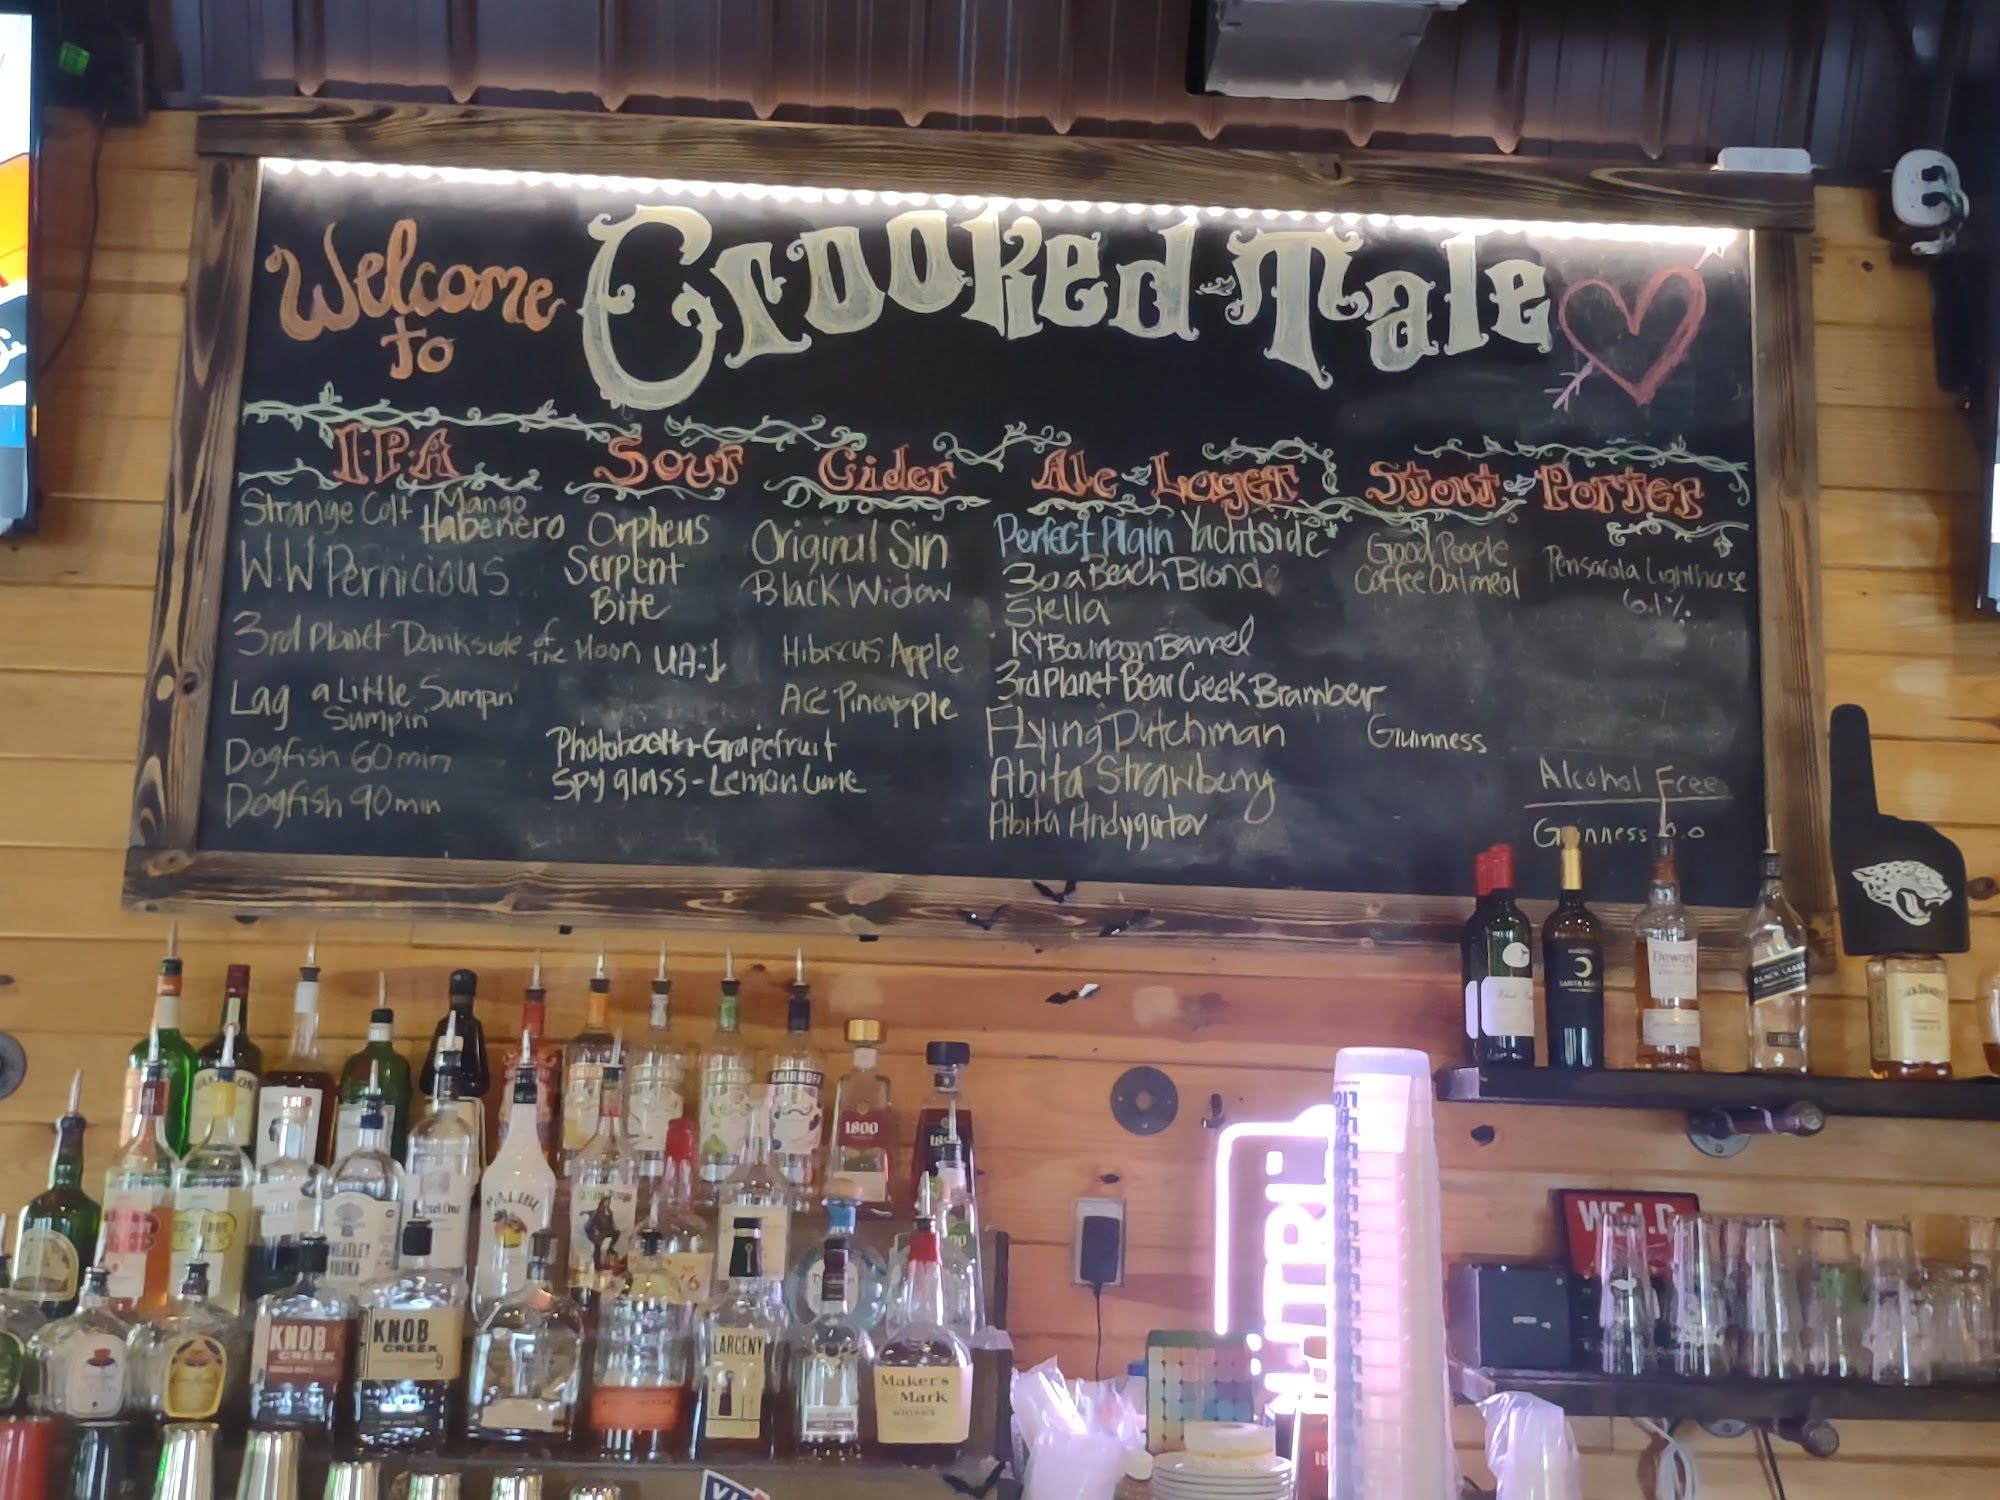 Welcome
to
Crooked Tale
I.P.A
Strange Colt Mango
Habenero
W.W Pernicious
3rd Planet Dankside of the Moon
Lag a Little Sumpin'
Sumpin'
Dogfish 60 min
Dogfish 90 min
Sour
Orpheus
Serpent
Bite
UA-1
Photobooth-Grapefruit
Spyglass-Lemon Lime
Cider
Original Sin
Black Widow
Hibiscus Apple
Ace Pineapple
Ale - Lager
Perfect Plain Yachtside*
30a Beach Blonde
Stella
KY Bourbon Barrel
3rd Planet Bear Creek Bramber
Flying Dutchman
Abita Strawberry
Abita Andygator
Stout - Porter
Good People
Coffee Oatmeal
Guinness
Pensacola Lighthouse
6.1%
Alcohol Free
Guinness 0.0
Dewar's
BLACK LABEL
JACK DANIEL'S
SMIRNOFF
1800
MALIBU
WHEATLEY
VODKA
KNOB
CREEK
KNOB
CREEK
9
LARCENY
Maker's
Mark
WHISKY
ULTRA